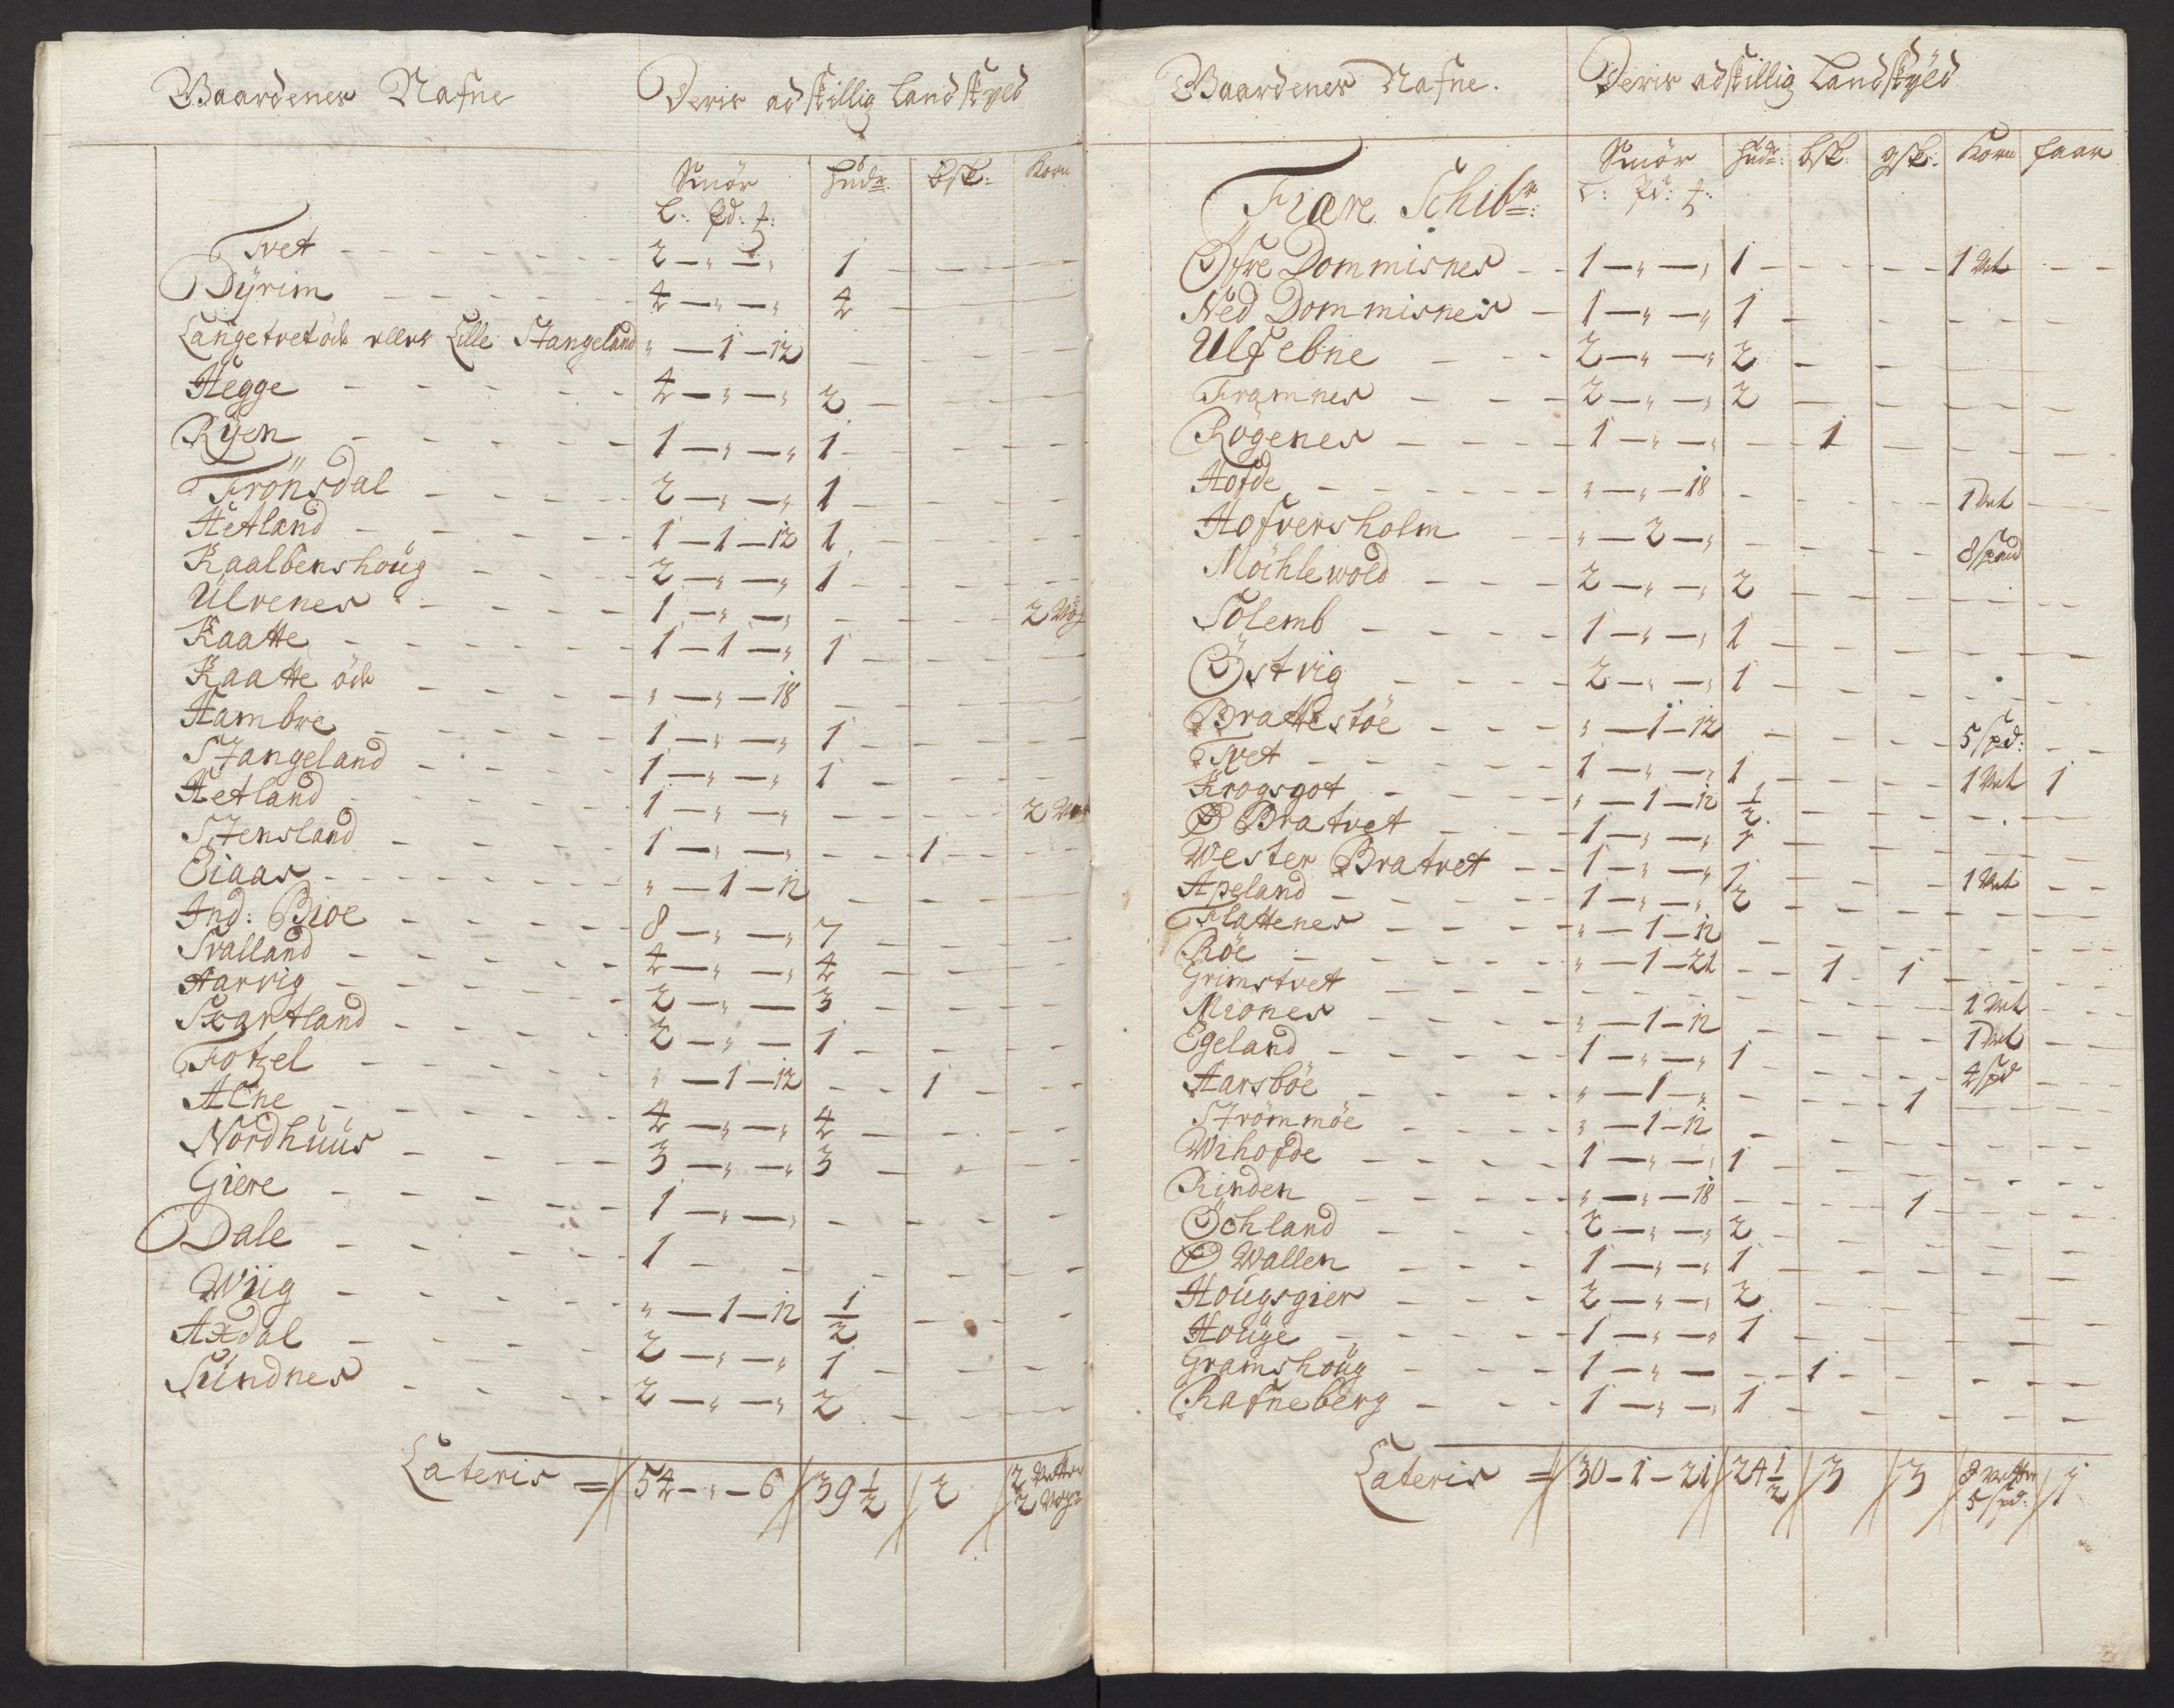 Gaardenes Nafne Deris adskillig Landskyld
Smör hudr: bsk: Korn
L: pd: ℔:
Tvet 2 - " - " 1
Dÿrim 4 - " - " 4
Langetvet öde ellers Lille Stangeland " - 1 - 12
Hegge 4 - " - " 2
Rÿen 1 - " - " 1
Frönsdal 2 - " - " 1
Hetland 1 - 1 - 12 1
Kaalbenshoug 2 - " - " 1
Ulvenes 1 - " - " 2 Wog
Kaatte 1 - 1 - " 1
Kaatte öde " - " - 18
Hambre 1 - " - " 1
Stangeland 1 - " - " 1
Hetland 1 - " - " 2 Vet
Stensland 1 - " - " 1
Eiaas " - 1 - 12
Ind: Bioe 8 - " - " 7
Svalland 4 - " - " 4
Aarvig 2 - " - 3
Svartland 2 - " - 1
Fotzel " - 1 - 12 1
Alne 4 - " - " 4
Nordhuus 3 - " - " 3
Giere 1 - " - "
Dale 1
Wiig " - 1 - 12 1/2
Axdal 2 - " - " 1
Sundnes 2 - " - " 2
Lateris = 54 - " - 6 39 1/2 2 2 Vetter
2 Wog:
Gaardenes Nafne. Deris adskillig Landskyld
Smör hudr: bsk: gsk: Korn faar
L: pd: ℔:
Fiære Schibr:
Öfre Dommisnes 1 - " - " 1 1 Vet
Ned Dommisnes 1 - " - " 1
Ulfebne 2 - " - " 2
Framnes 2 - " - " 2
Rogenes 1 - " - " 1
Hofde " - " - 18 1 Vet
Hofversholm " - 2 - " 8 spand
Möchlewold 2 - " - " 2
Solemb 1 - " - " 1
Östvig 2 - " - " 1
Brattestöe " - 1 - 12 5 spd:
Tvet 1 - " - " 1 1 Vet 1
Krogsgot " - 1 - 12 1/2
Ø Bratvet 1 - " - " 1
Wester Bratvet 1 - " - " 1 1 Vet
Apeland 1 - " - " 2
Flattenes " - 1 - 12
Röe " - 1 - 21 1 1
Grimstvet 1 Vet
Miones " - 1 - 12 1 Vet
Egeland 1 - " - " 1 4 spd
Aarsböe " - 1 - " 1
Strömmöe " - 1 - 12
Wihofde 1 - " - " 1
Rinden " - " - 18 1
Öchland 2 - " - " 2
Ø Wallen 1 - " - " 1
Hougsgier 2 - " - " 2
Houge 1 - " - " 1
Gramshoug 1 - " - 1
Rafneberg 1 - " - " 1
Lateris = 30 - 1 - 21 24 1/2 3 3 8 Vetter 1
5 spd: